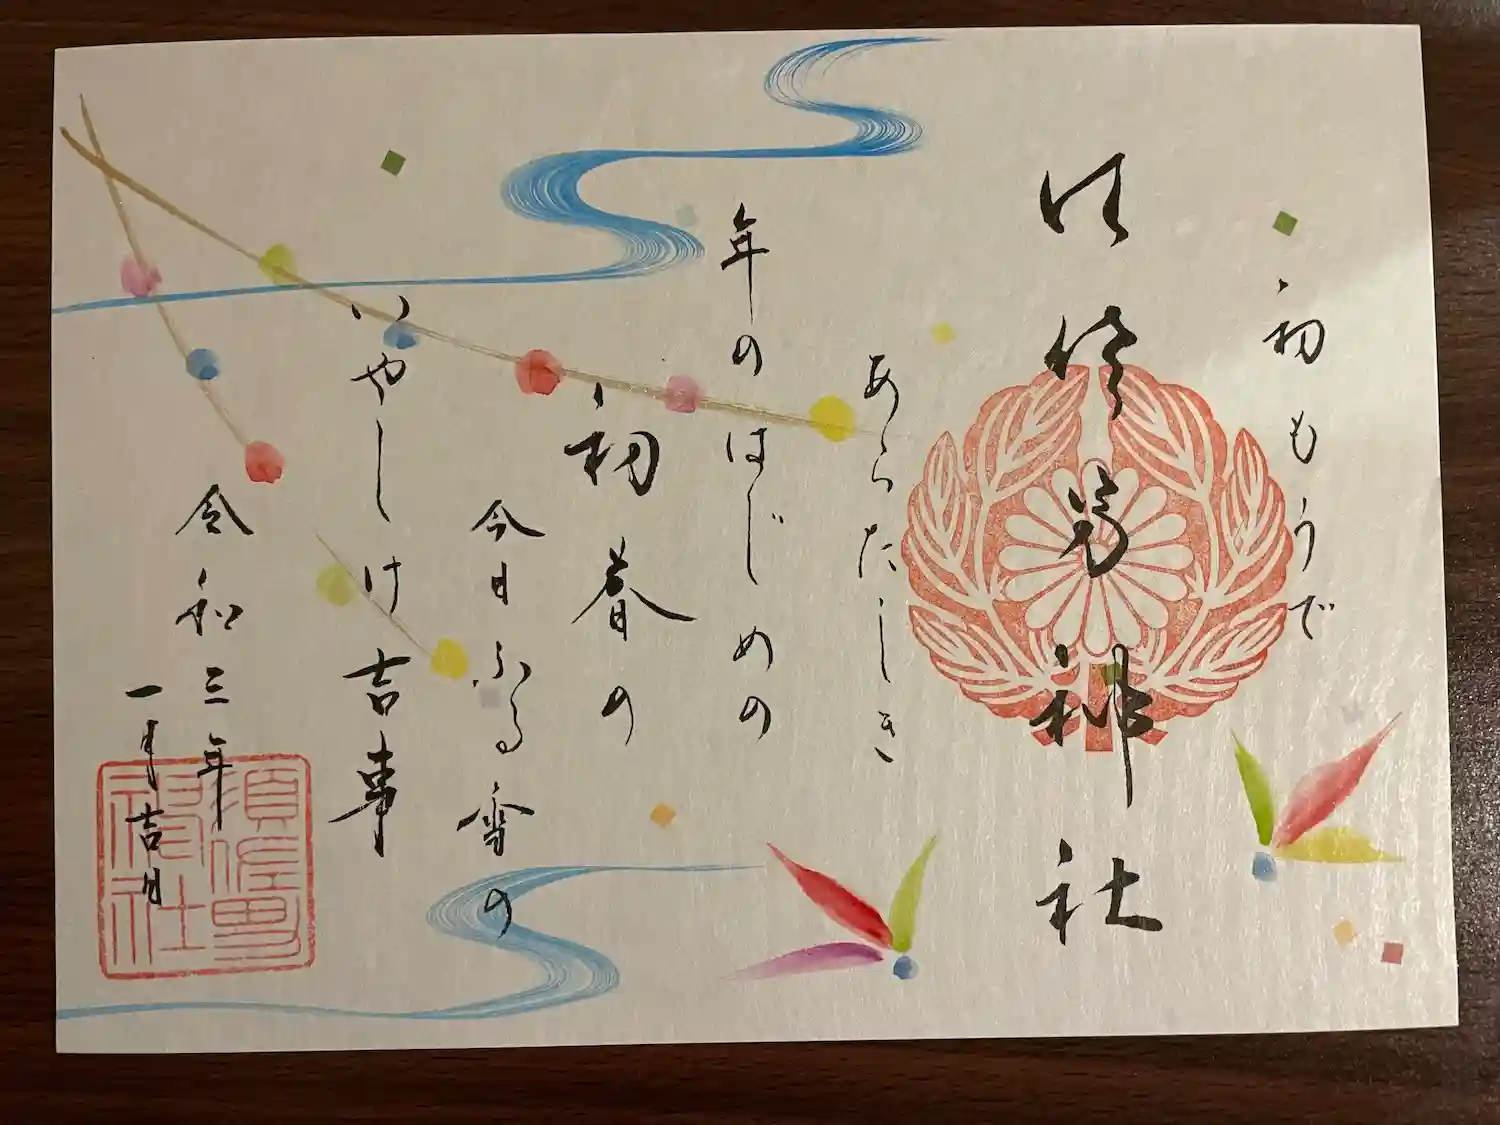 初もうで
須佐男神社
あらたしき
年のはじめの
初春の
今日ふる雪の
いやしけ吉事
令和三年
一月吉日
須佐男
神社